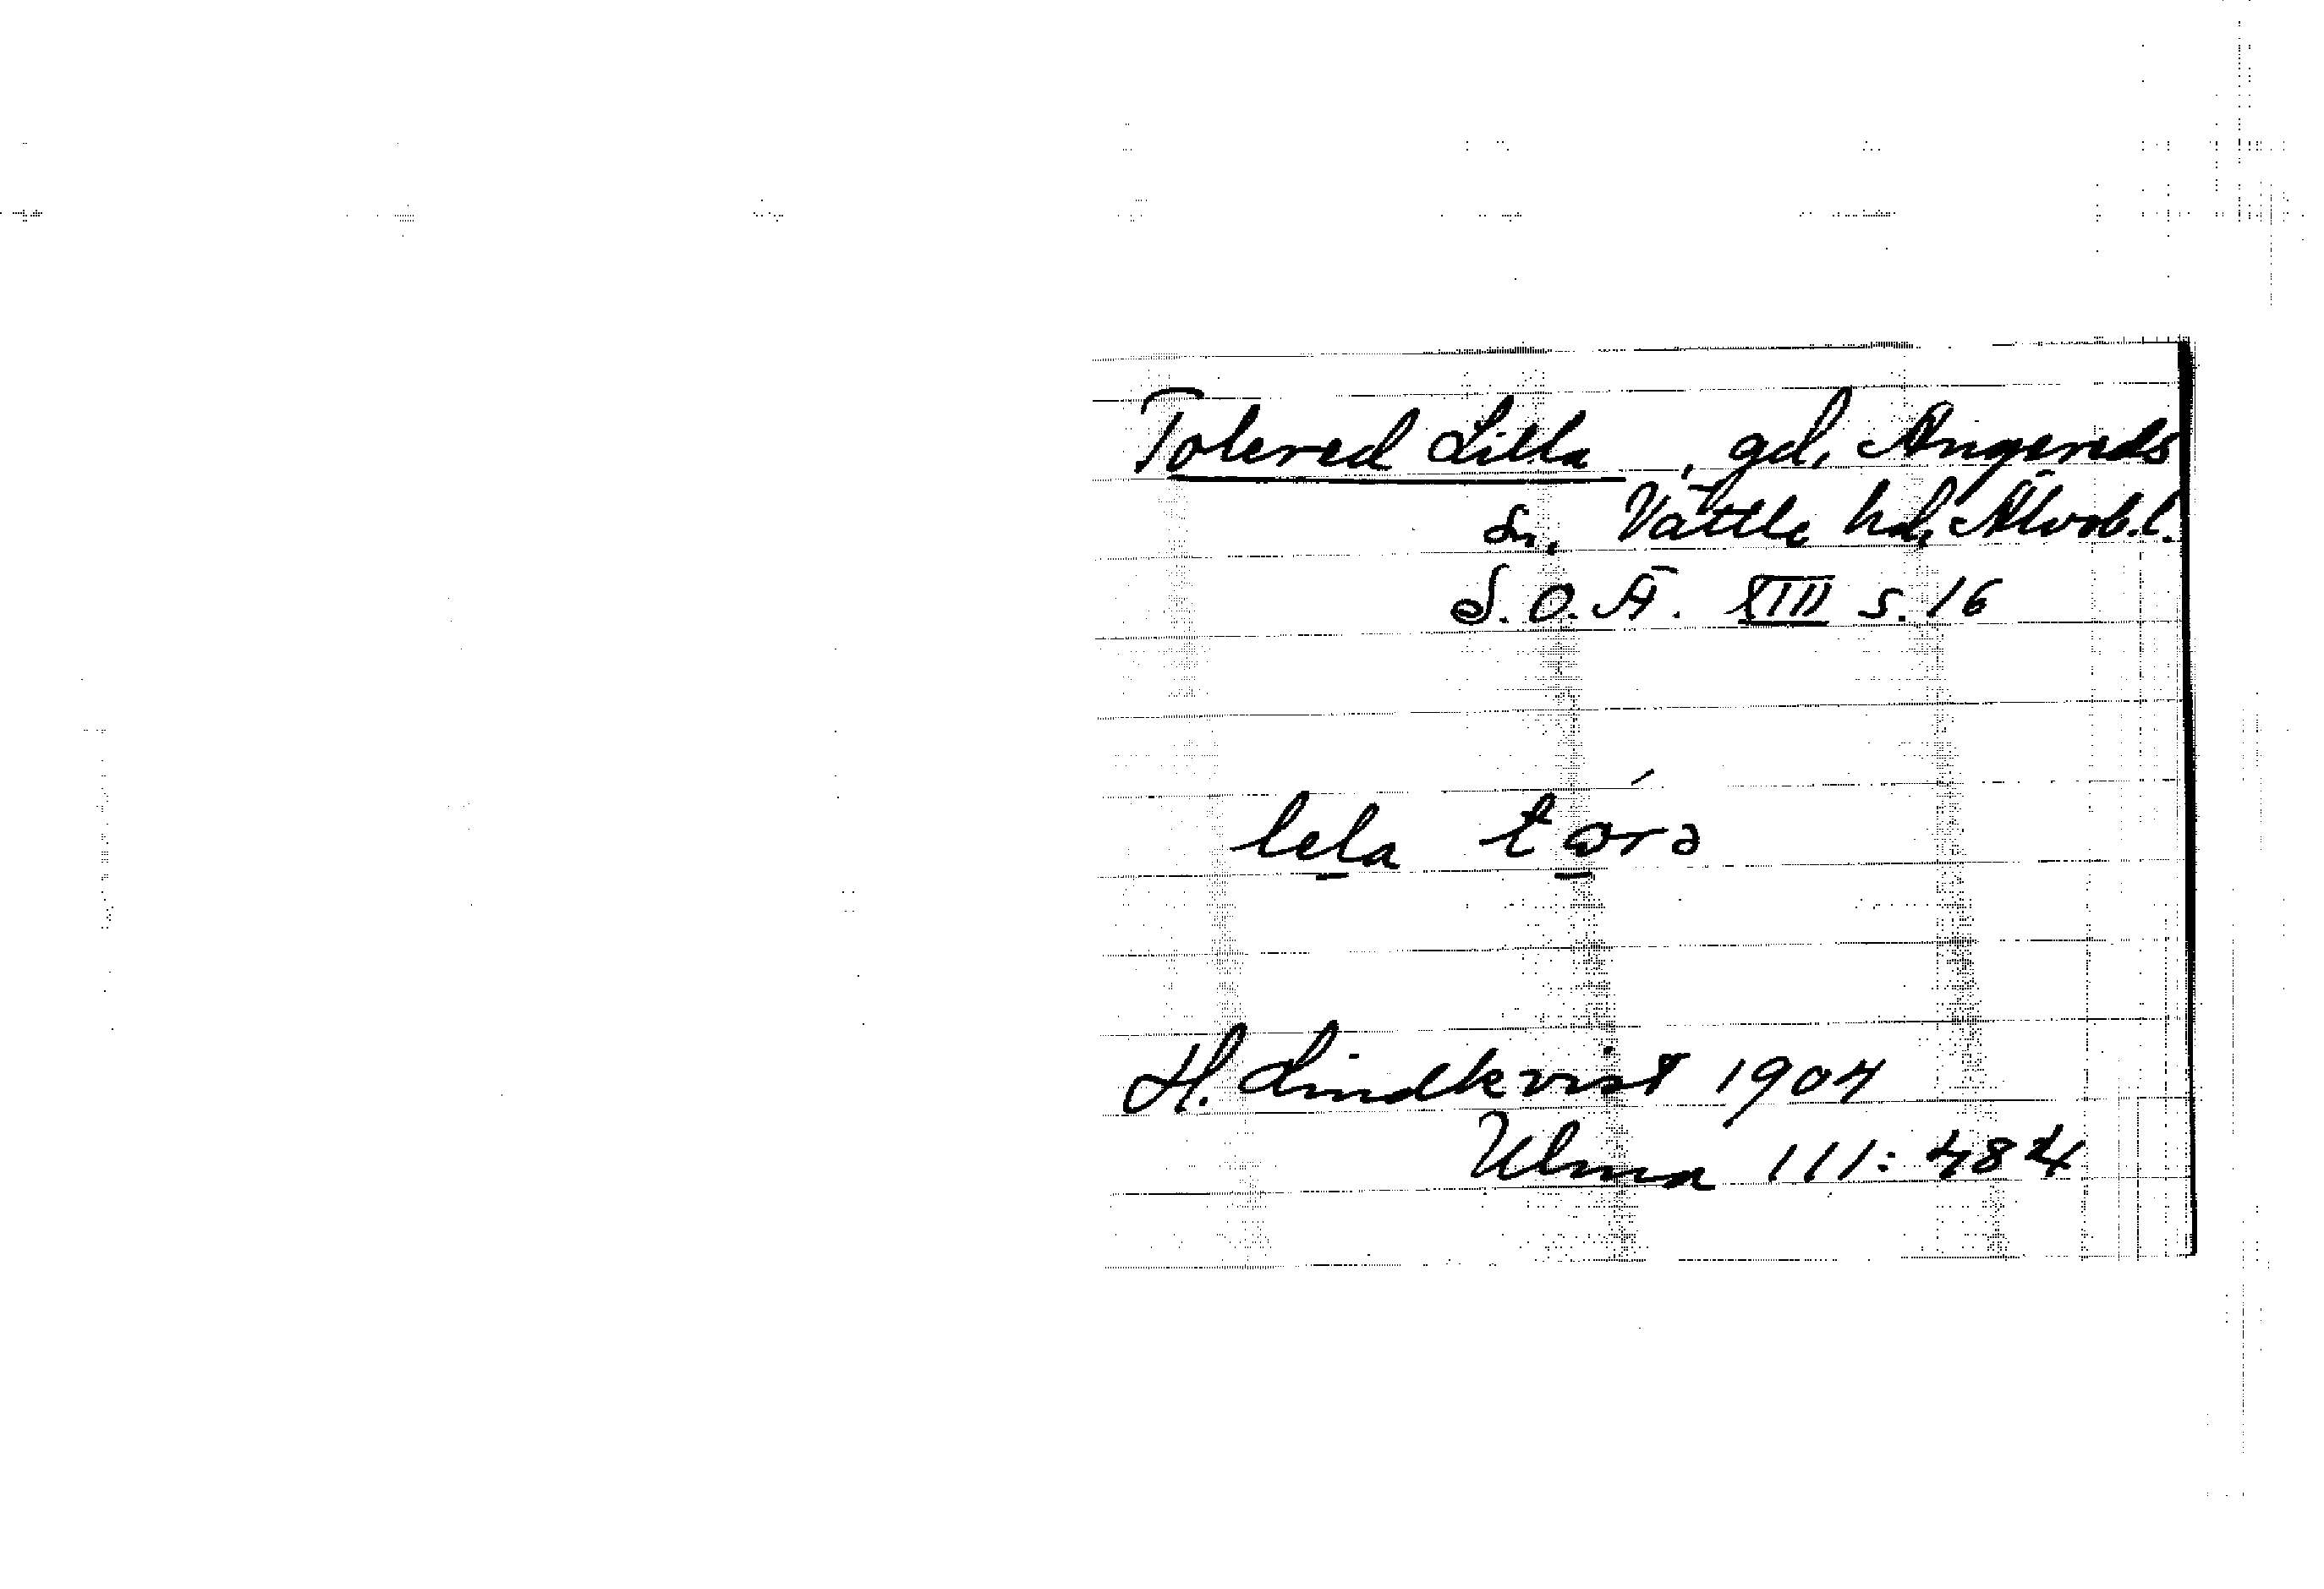 Tolered Lilla, gd, Angereds
sn. Vättle hd, Älvsb.l.
S.O.Ä. XIII s. 16
lela tørə
H. Lindkvist 1904
Ulma 111:484